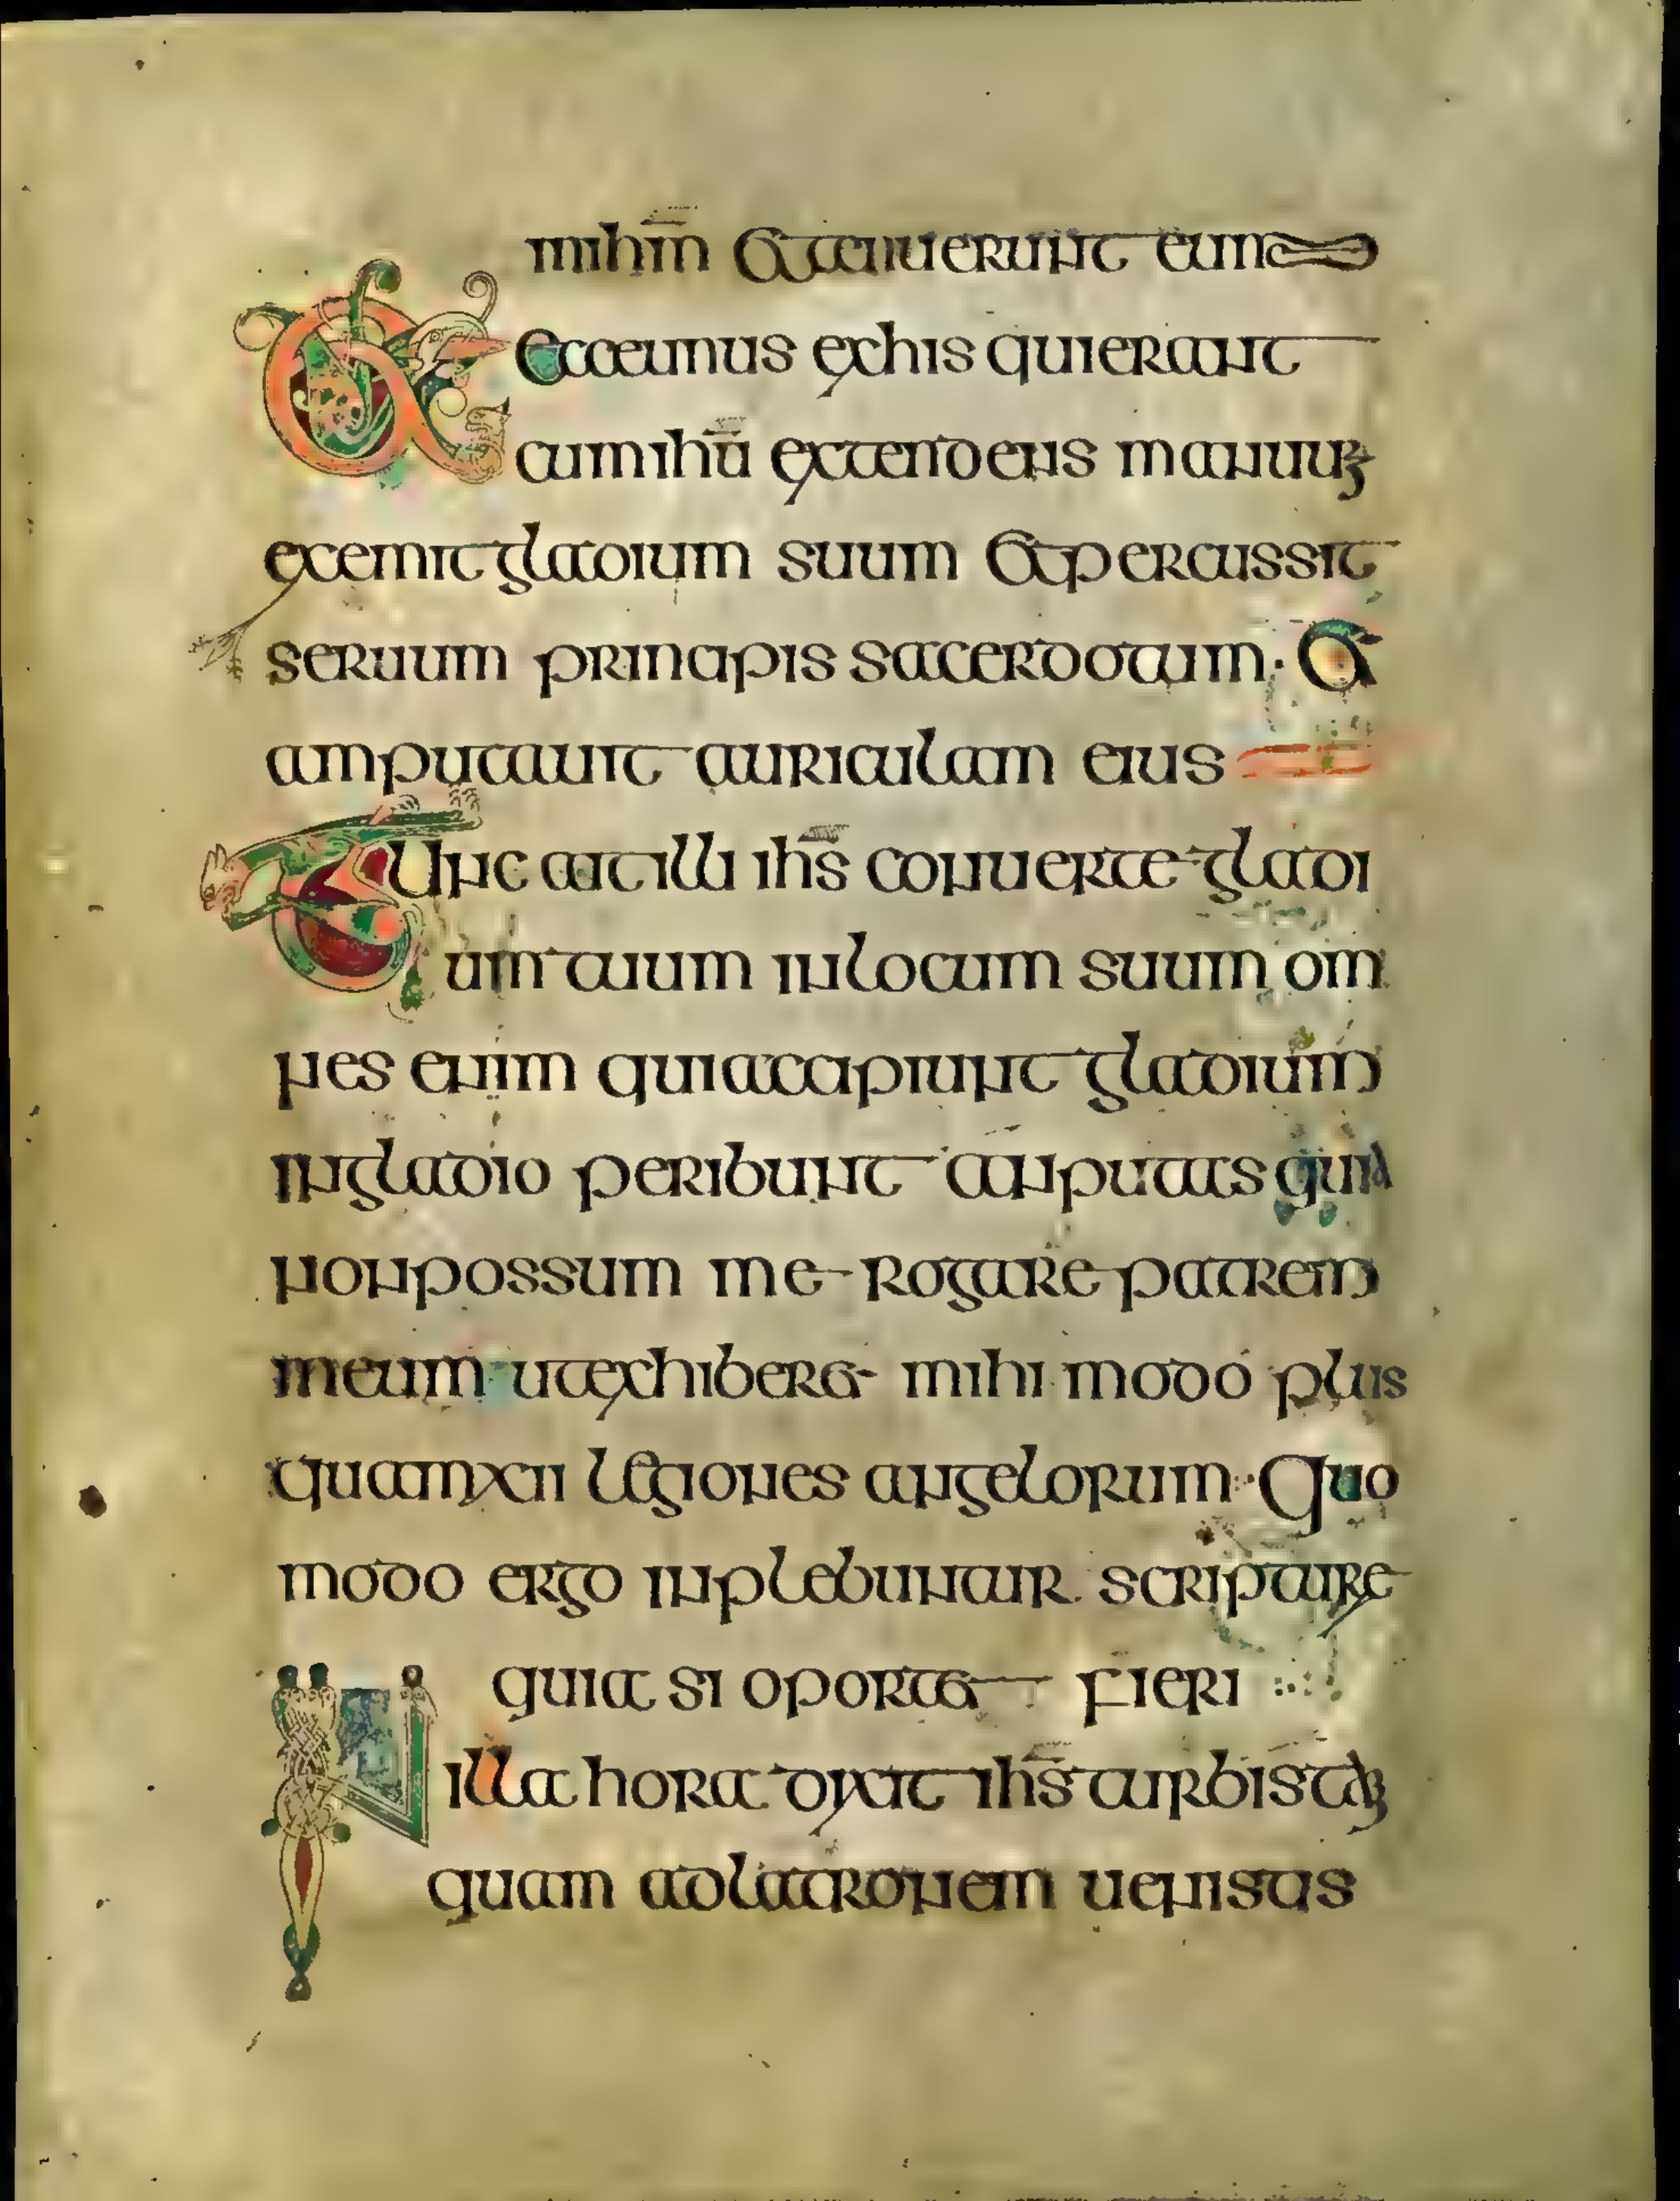 mihm̄ et tenuerunt eum
Et ecce unus ex his qui erant
cum ihū extendens manuꝫ
exemit gladium suum et percussit
seruum principis sacerdotum · et
amputauit auriculam eius
Tunc ait illi ihs̄ conuerte gladi
um tuum in locum suum om
nes enim qui accapiunt gladium
in gladio peribunt an putas quia
non possum me rogare patrem
meum ut exhiberet mihi modó plus
quam xii legiones angelorum · Quo
modo ergo inplebuntur scripturę
quia si oportet fieri
IN illa hora dixit ihs̄ turbis tāꝫ
quam ad latronem uenistis